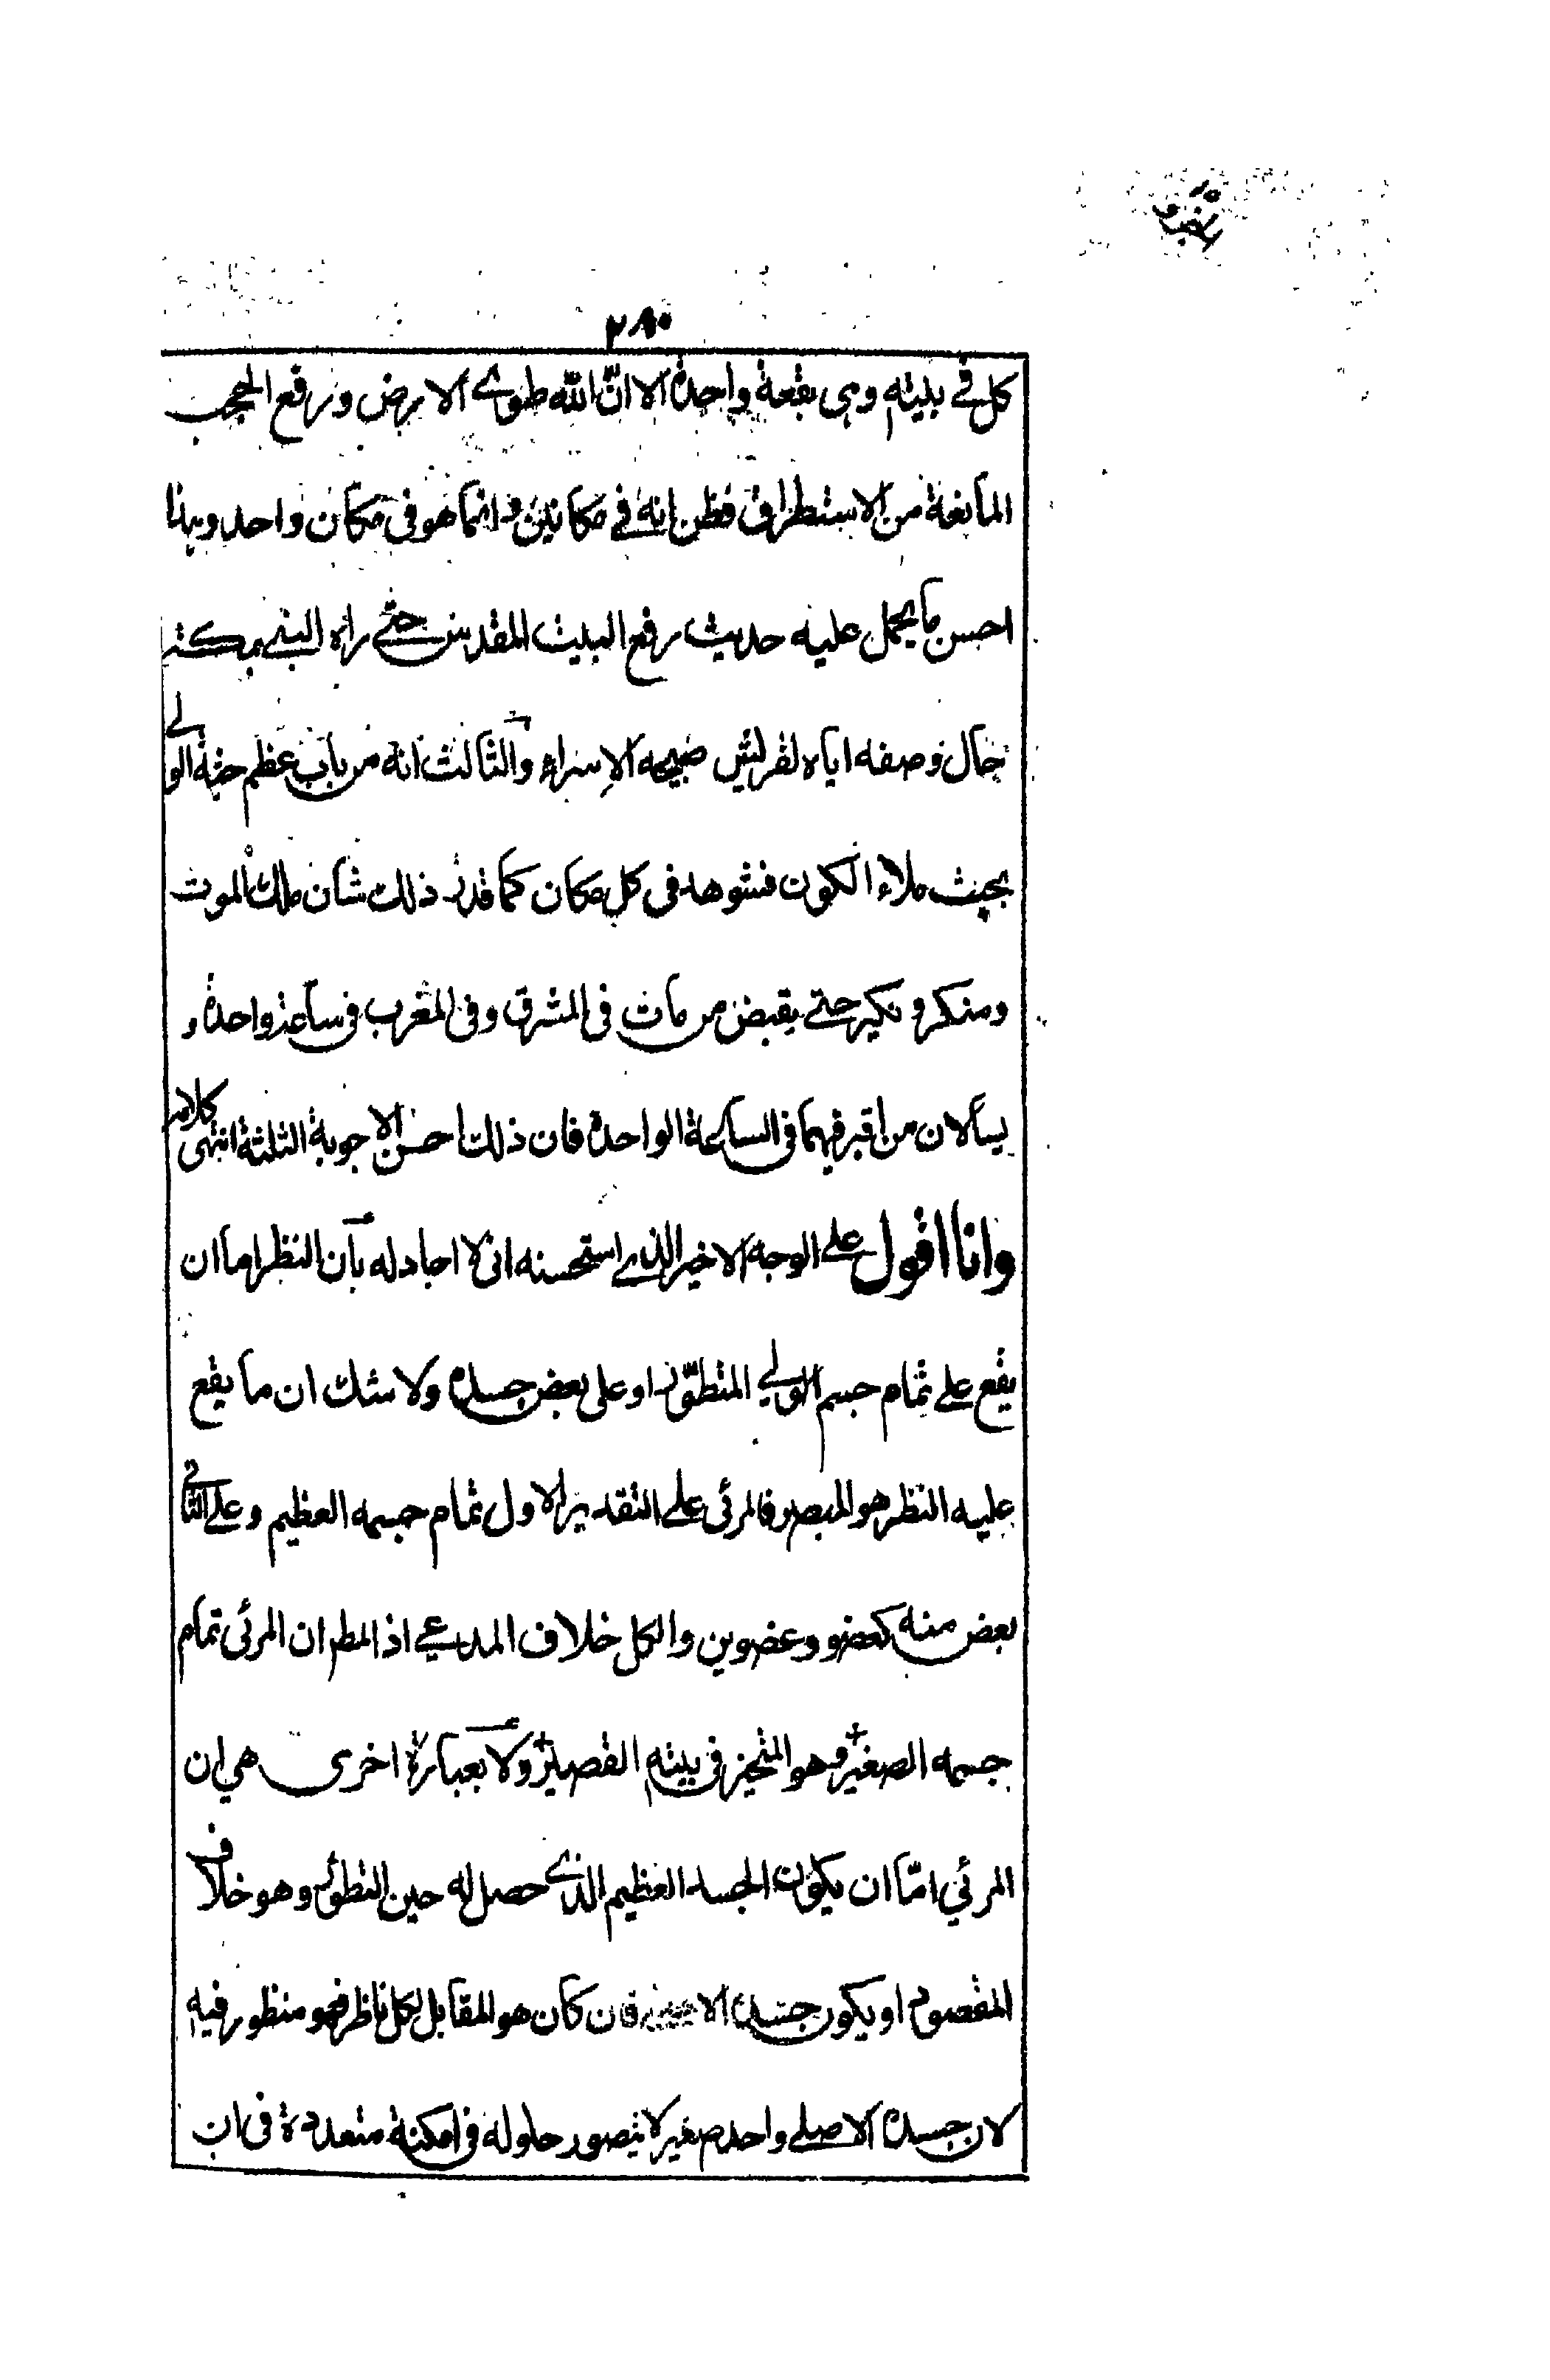 ٢٨٠
كل في بيته وهي بقعة واحدة الا انّ الله طوى الارض ورفع الحجب
المانعة من الاستطراق فظن انه في مكانين وانما هو في مكان واحد وهذا
احسن ما يحمل عليه حديث رفع البيت المقدس حتى راه النبي بمكة
حال وصفه اياه لقريش صبيحة الاسراء والثالث انه من باب عظم جثة الولي
بحيث ملاء الكون فشوهد في كل مكان كما قدر ذلك شان ملك الموت
ومنكر ونكير حتى يقبض من مات في المشرق وفي المغرب في ساعة واحدة و
يسألان من اقبر فيهما في الساعة الواحدة فان ذلك احسن الاجوبة الثلثة انتهى كلامه
وانا اقول على الوجه الاخير الذي استحسنه اني لا اجادله بان النظر اما ان
يقع على تمام جسم الولي المتطوّر او على بعض جسده ولا شك ان ما يقع
عليه النظر هو المبصر فالمرئي على التقدير الاول تمام جسمه العظيم وعلى الثاني
بعض منه كعضو وعضوين والكل خلاف المدعى اذ المطم ان المرئي تمام
جسمه الصغير وهو المتحيز في بيته القصير ولا بعبارة اخرى هي ان
المرئي امّا ان يكون الجسد العظيم الذي حصل له حين التطور وهو خلاف
المقصوم او يكون جسده فان كان هو المقابل لكل ناظر فهو منظور فيه
لان جسده الاصلي واحد صغير لا يتصور حلوله في امكنة متعددة في ان